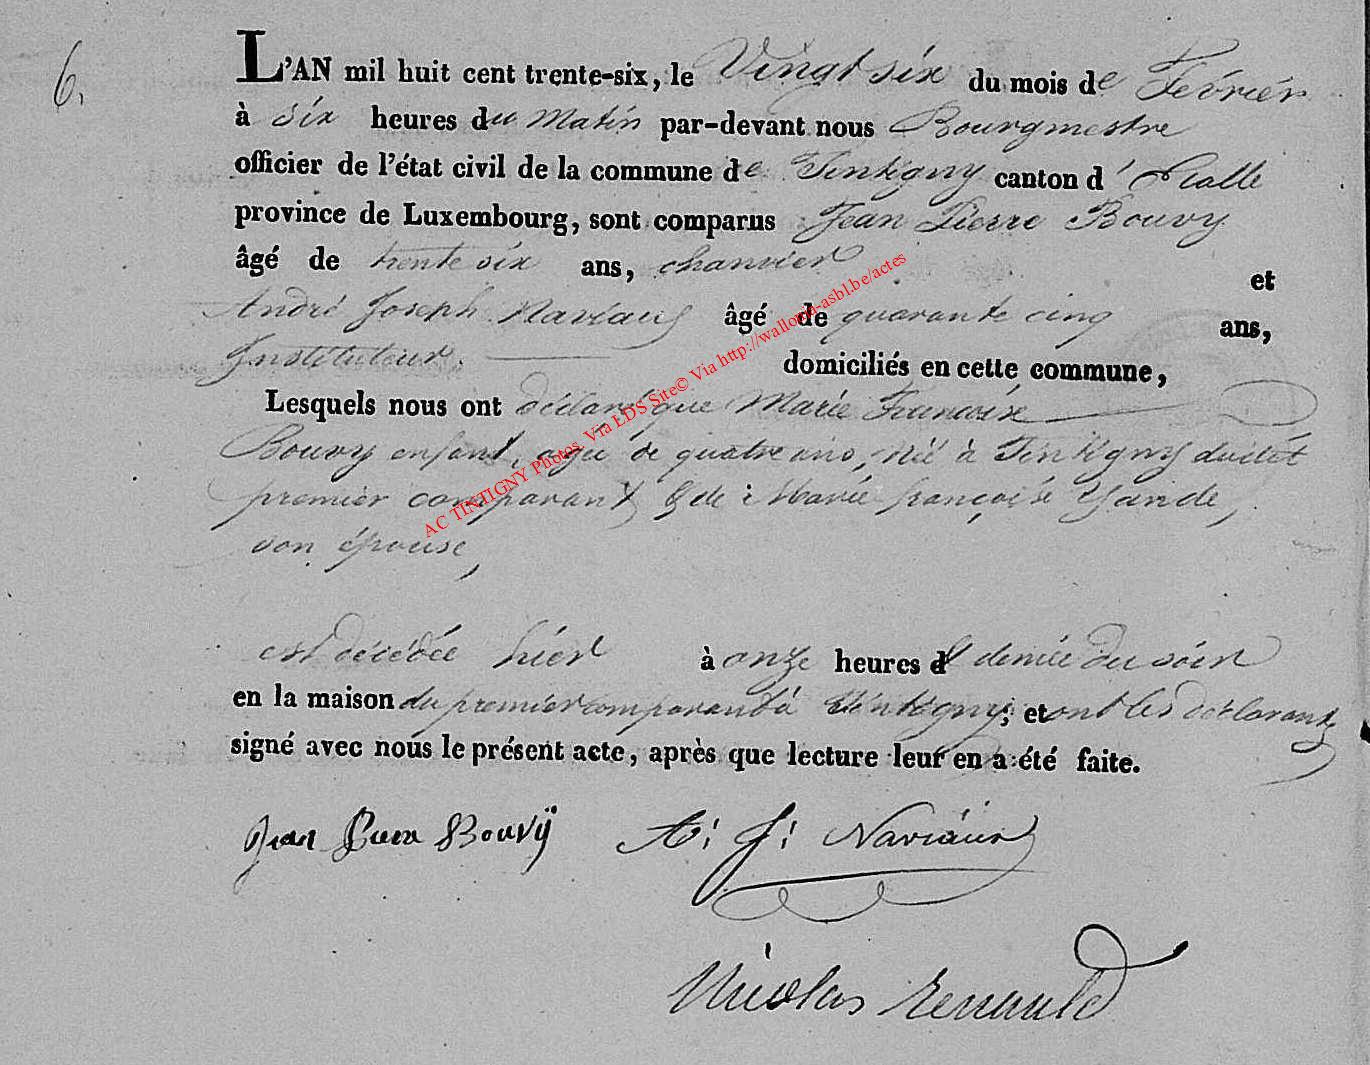 6.
L'AN mil huit cent trente-six, le Vingt six du mois de Février
à six heures du Matin par-devant nous Bourgmestre
officier de l'état civil de la commune de Tintigny canton d' Etalle
province de Luxembourg, sont comparus Jean Pierre Bouvy
âgé de trente six ans, et
André Joseph Naviaux âgé de quarante cinq ans,
Instituteur. domiciliés en cette commune,
Lesquels nous ont déclaré que Marie Francoise
Bouvy enfant, agé de quatre ans, Né à Tintigny dudit
premier comparant & de Marie françoise
son épouse,
est décédée hier à onze heures & demie du soir
en la maison du premier comparant à Tintigny; et ont les déclarants
signé avec nous le présent acte, après que lecture leur en a été faite.
Jean Bouvÿ A. J. Naviaux
Nicolas Renauld
AC TINTIGNY Photos. Via LDS Site© Via http://wallonia-asbl.be/actes